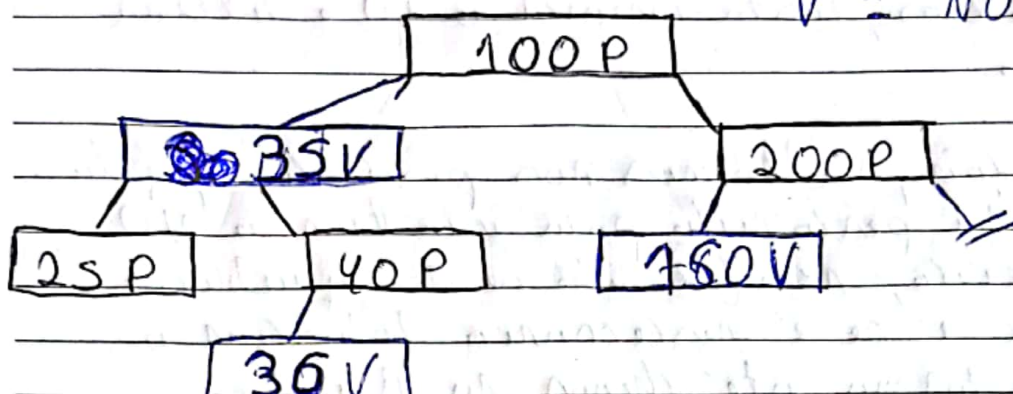 V = NO
100 P
35 V
200 P
25 P
40 P
36 V